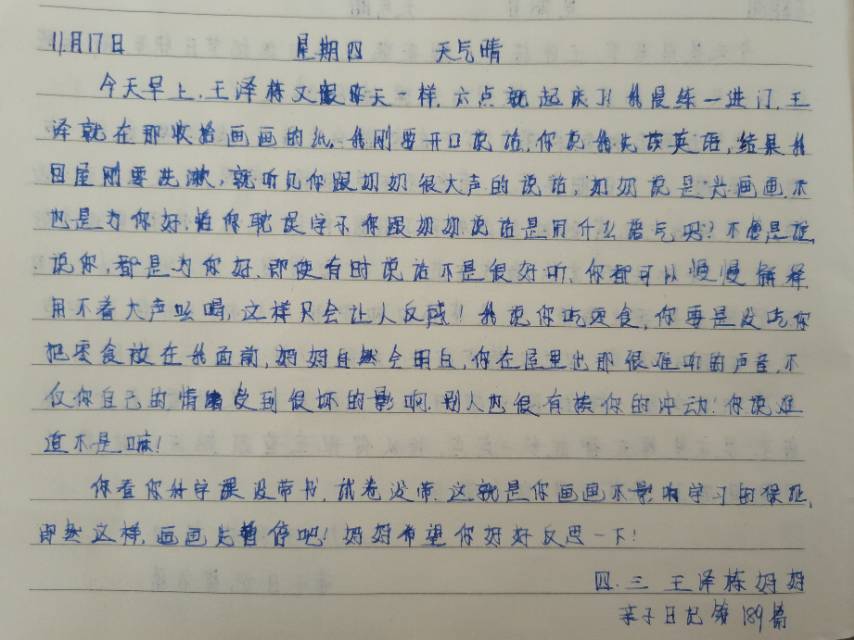 11月17日 星期四 天气晴
今天早上,王泽栋又跟昨天一样,六点就起床了!我晨练一进门,王
泽就在那收拾画画的纸,我刚要开口说话,你说我先读英语,结果我
回屋刚要洗漱,就听见你跟奶奶很大声的说话,奶奶说是光画画,不
也是为你好,怕你耽误学习,你跟奶奶说话是用什么语气呀?不管是谁
说你,都是为你好,即使有时说话不是很好听,你都可以慢慢解释,
用不着大声吆喝,这样只会让人反感!我说你吃零食,你要是没吃,你
把零食放在我面前,妈妈自然会明白,你在屋里出那很难听的声音,不
仅你自己的情绪受到很坏的影响,别人也很有揍你的冲动!你说难
道不是嘛!
你看你数学课没带书,试卷没带,这就是你画画不影响学习的保证,
即然这样,画画先暂停吧!妈妈希望你好好反思一下!
四.三 王泽栋妈妈
亲子日记第189篇